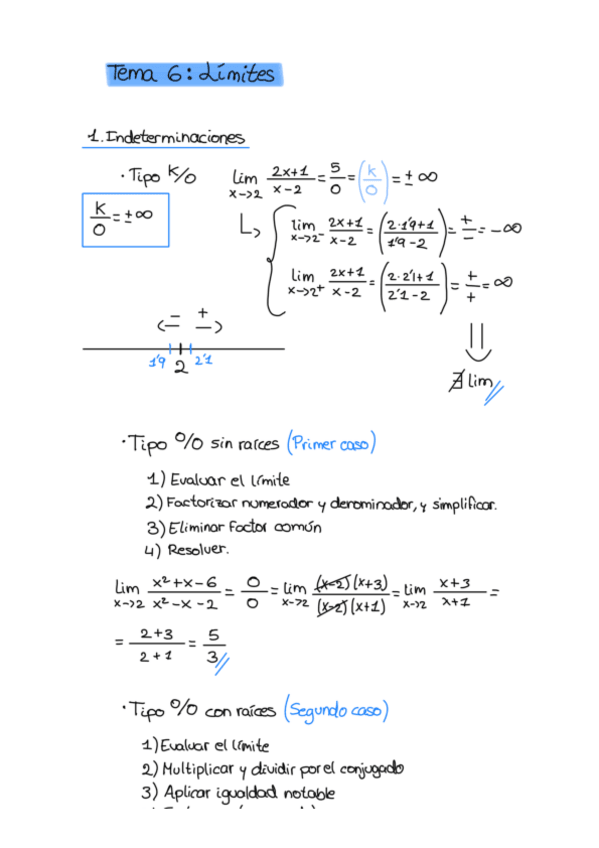 Tema 6: Límites
1. Indeterminaciones
· Tipo K/0 lim x→2 2x+1/x-2 = 5/0 = (K/0) = ± ∞
K/0 = ±∞
↳ { lim x→2⁻ 2x+1/x-2 = (2·1'9+1/1'9-2) = +/- = -∞
lim x→2⁺ 2x+1/x-2 = (2·2'1+1/2'1-2) = +/+ = ∞
← - + →
1'9 2 2'1
⇓
∄ lim //
· Tipo 0/0 sin raíces (Primer caso)
1) Evaluar el límite
2) Factorizar numerador y denominador, y simplificar.
3) Eliminar factor común
4) Resolver.
lim x→2 x²+x-6/x²-x-2 = 0/0 = lim x→2 (x-2)(x+3)/(x-2)(x+1) = lim x→2 x+3/x+1 =
= 2+3/2+1 = 5/3 //
· Tipo 0/0 con raíces (Segundo caso)
1) Evaluar el límite
2) Multiplicar y dividir por el conjugado
3) Aplicar igualdad notable